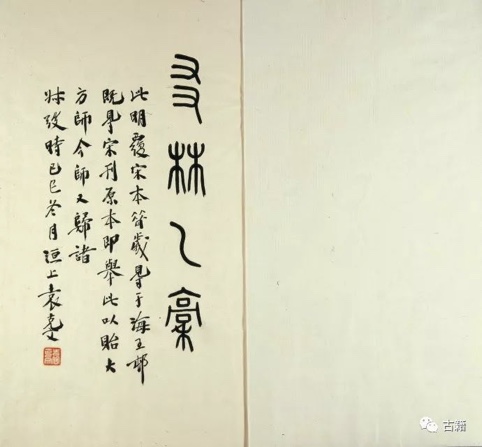 友林乙稾
此明覆宋本昔歲得于海王邨
既得宋刊原本即舉此以貽大
方師今師又歸諸
叔弢時己巳冬月洹上袁克文
古籍